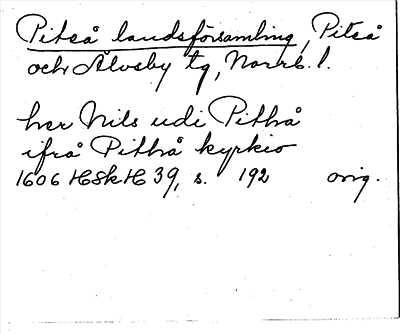 Piteå landsförsamling, Piteå
och Älvsby tg, Norrb. l.
her Nils udi Pithå
ifrå Pithå kyrkio
1606 HSkH 39, s. 192 orig.